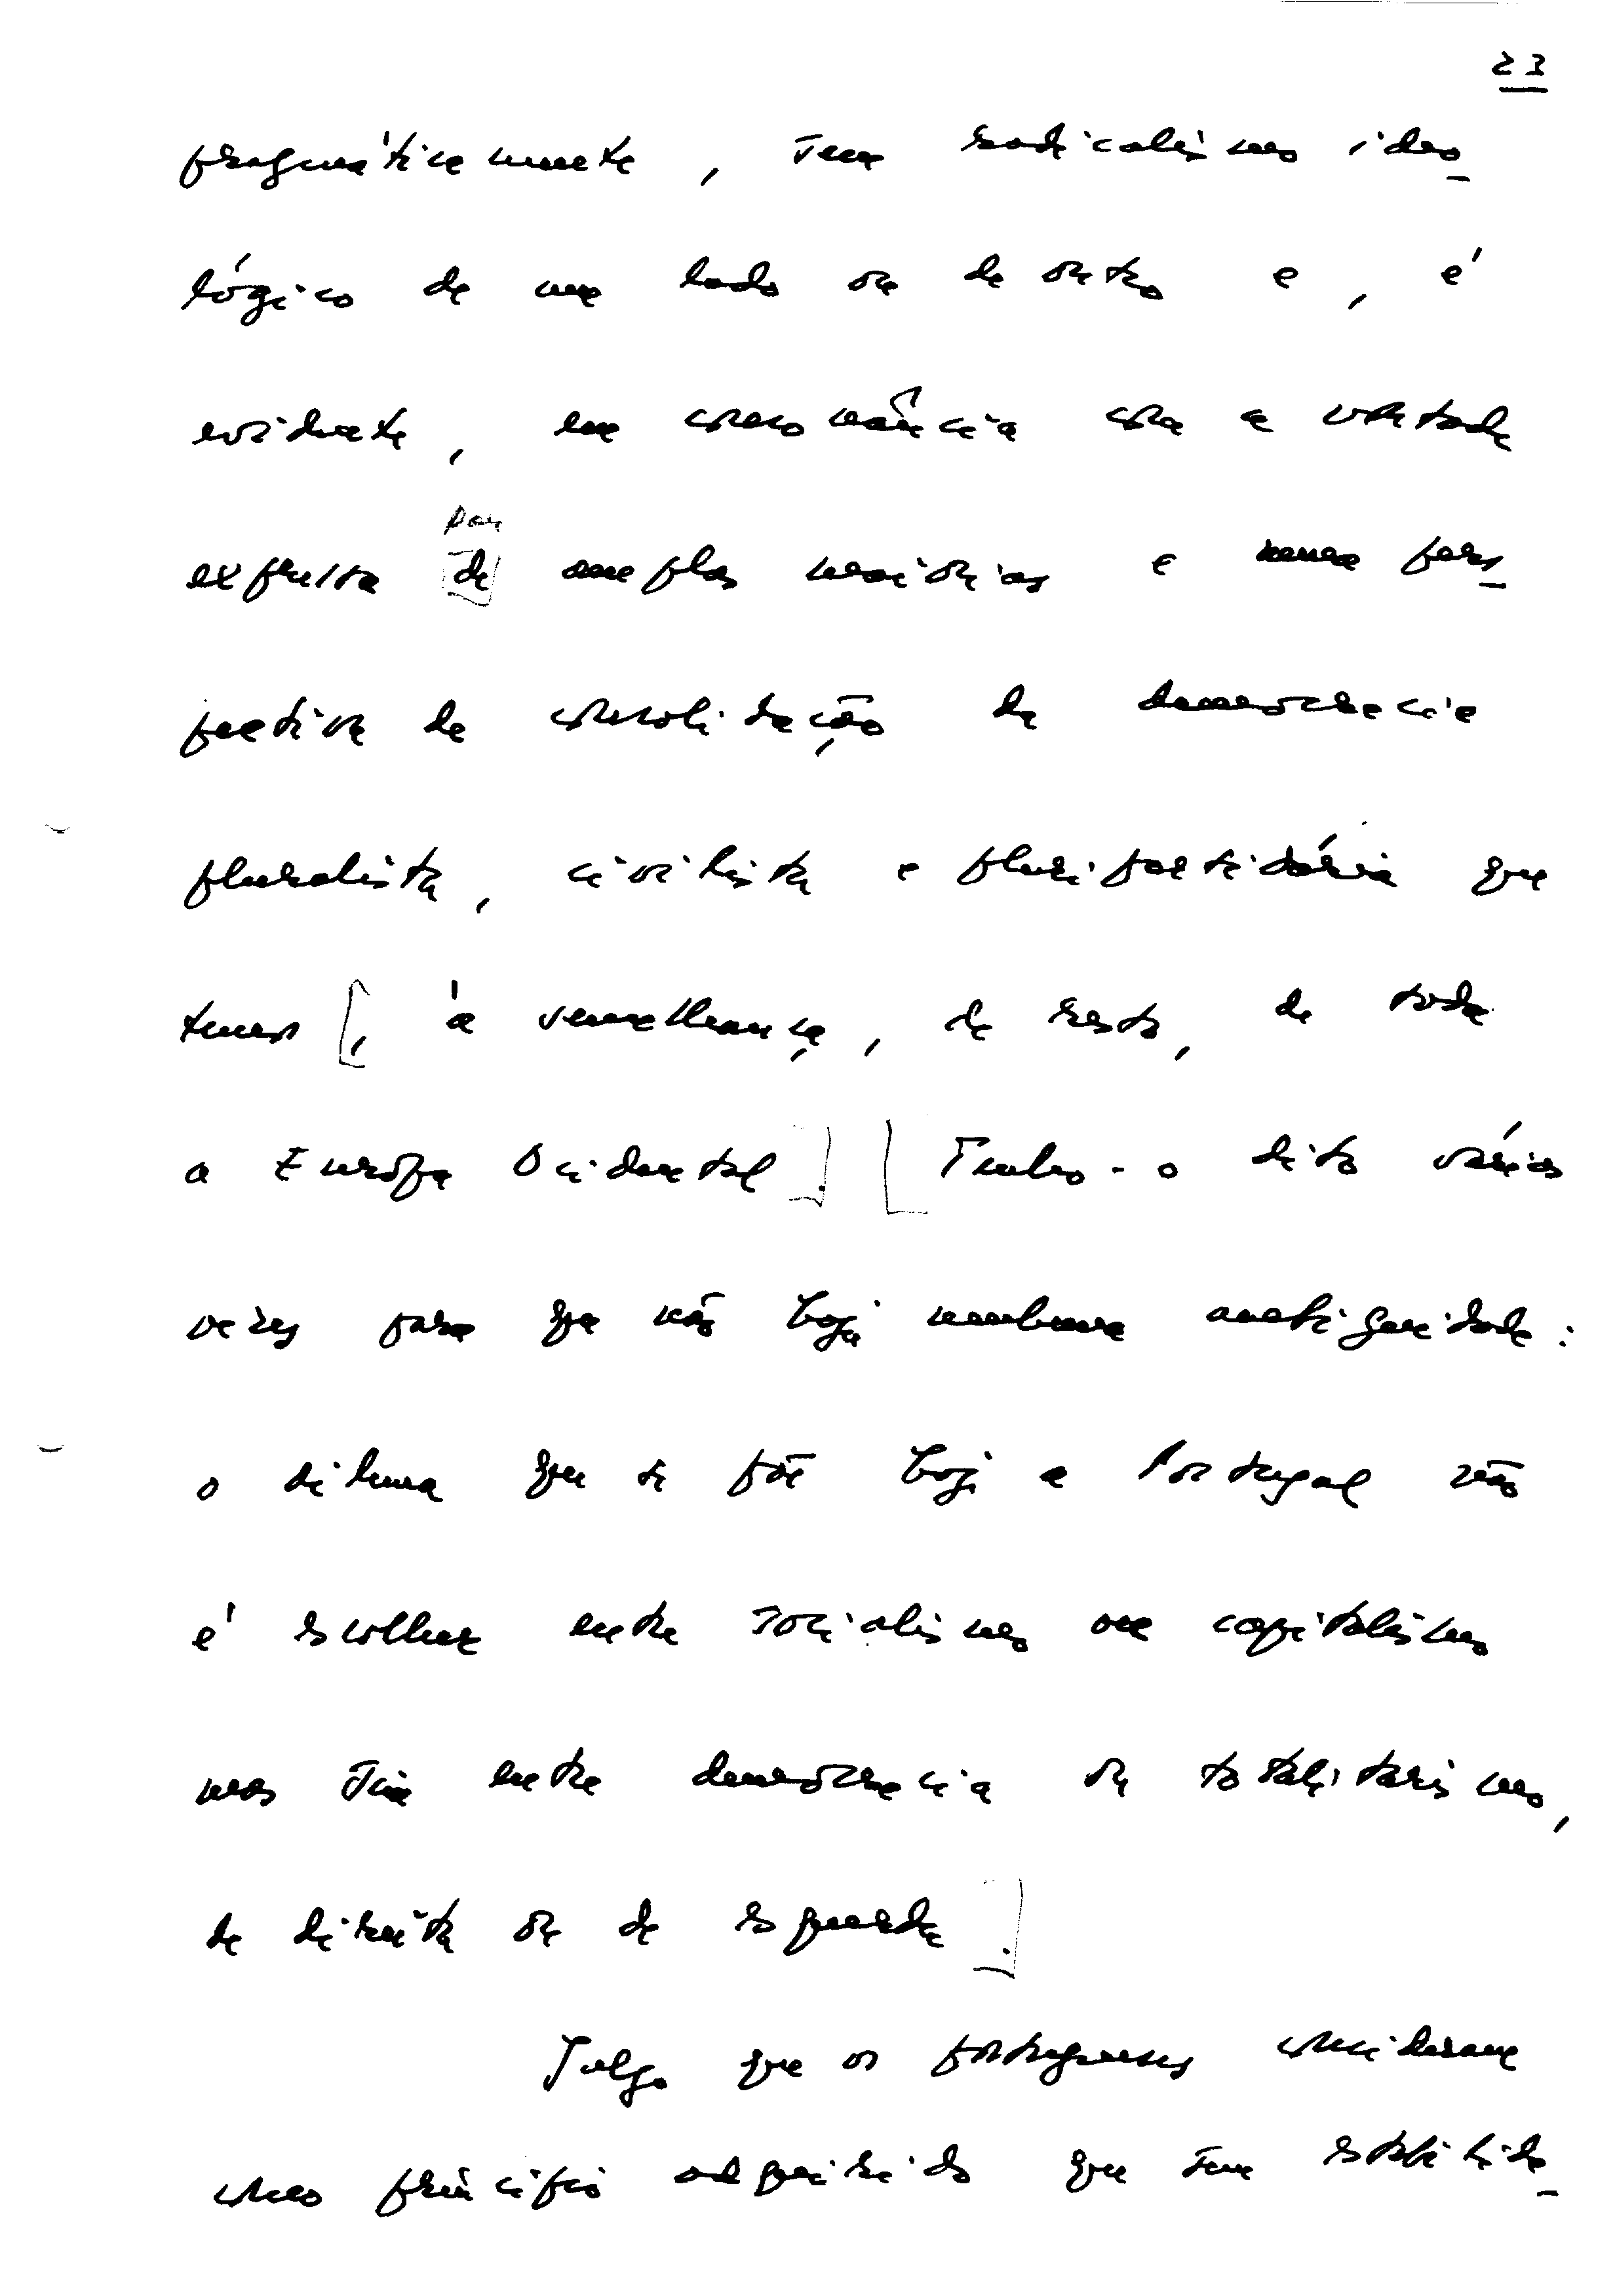 23
pragmáticamente, sem radicalismo ideo_
lógico de um lado ou de outro e, é
evidente, em consonância com a vontade
por
expressa [de] amplas maiorias e numa pers_
pectiva de consolidação da democracia
pluralista, civilista e pluripartidária que
temos [, à semelhança, de resto, de toda
a Europa Ocidental.] [Tenho-o dito várias
vezes para que não haja nenhuma ambiguidade:
o dilema que se põe hoje a Portugal não
é escolher entre socialismo ou capitalismo
mas sim entre democracia ou totalitarismo,
de direita ou de esquerda.]
Julgo que os portugueses consideram
como princípio adquirido que sem estabilida_